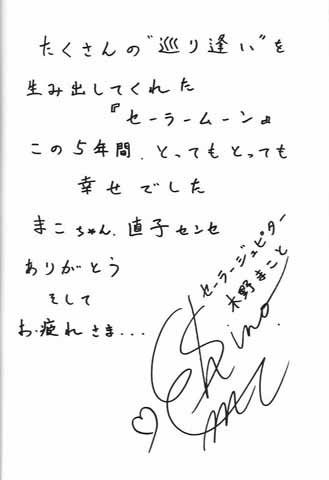 たくさんの“巡り逢い”を
生み出してくれた
『セーラームーン』
この5年間、とってもとっても
幸せでした
まこちゃん、直子センセ
ありがとう
そして
お・疲れさま...
セーラージュピター
木野まこと